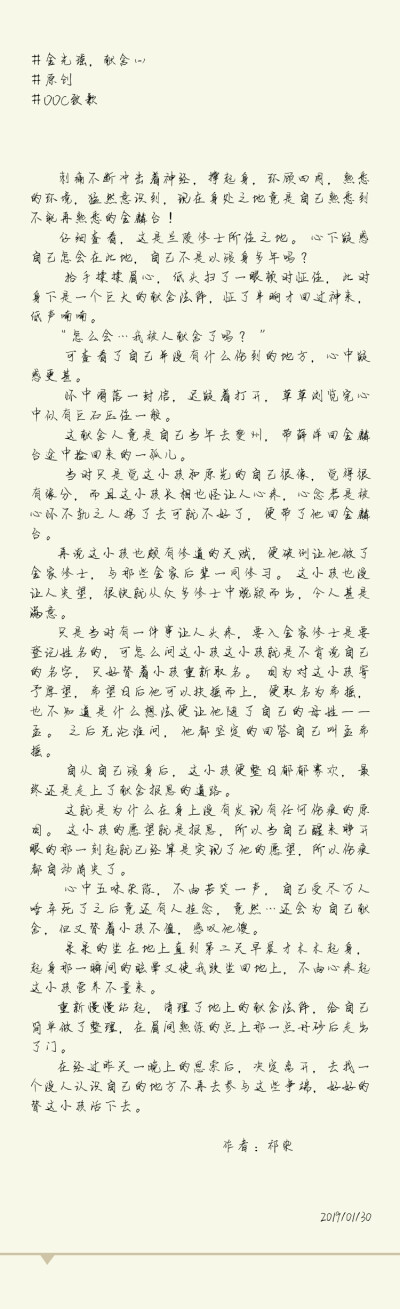 #金光瑶，献舍（一）
#原创
#OOC致歉
刺痛不断冲击着神经，撑起身，环顾四周，熟悉
的环境，猛然意识到，现在身处之地竟是自己熟悉到
不能再熟悉的金麟台！
仔细查看，这是兰陵修士所住之地。心下疑惑
自己怎会在此地，自己不是以殒身多年吗？
抬手揉揉眉心，低头扫了一眼顿时怔住，此时
身下是一个巨大的献舍法阵，怔了半晌才回过神来，
低声喃喃。
“怎么会…我被人献舍了吗？”
可查看了自己并没有什么伤到的地方，心中疑
惑更甚。
怀中滑落一封信，迟疑着打开，草草浏览完心
中似有巨石压住一般。
这献舍人竟是自己当年去夔州，带薛洋回金麟
台途中捡回来的一孤儿。
当时只是觉这小孩和原先的自己很像，觉得很
有缘分，而且这小孩长相也怪让人心疼，心念若是被
心怀不轨之人拐了去可就不好了，便带了他回金麟
台。
再说这小孩也颇有修道的天赋，便破例让他做了
金家修士，与那些金家后辈一同修习。这小孩也没
让人失望，很快就从众多修士中脱颖而出，令人甚是
满意。
只是当时有一件事让人头疼，要入金家修士是要
登记姓名的，可怎么问这小孩这小孩就是不肯说自己
的名字，只好替着小孩重新取名。因为对这小孩寄
予厚望，希望日后他可以扶摇而上，便取名为希摇，
也不知道是什么想法便让他随了自己的母姓——
孟。之后无论谁问，他都坚定的回答自己叫孟希
摇。
自从自己殒身后，这小孩便整日郁郁寡欢，最
终还是走上了献舍报恩的道路。
这就是为什么在身上没有发现有任何伤痕的原
因。这小孩的愿望就是报恩，所以当自己醒来睁开
眼的那一刻起就已经算是实现了他的愿望，所以伤痕
都自动消失了。
心中五味杂陈，不由苦笑一声，自己受尽万人
唾弃死了之后竟还有人挂念，竟然…还会为自己献
舍，但又替着小孩不值，感叹他傻。
呆呆的坐在地上直到第二天早晨才木木起身，
起身那一瞬间的眩晕又使我跌坐回地上，不由心疼起
这小孩营养不量来。
重新慢慢站起，清理了地上的献舍法阵，给自己
简单做了整理，在眉间熟练的点上那一点丹砂后走出
了门。
在经过昨天一晚上的思索后，决定离开，去找一
个没人认识自己的地方不再去参与这些争端，好好的
替这小孩活下去。
作者：祁栗
2019/01/30